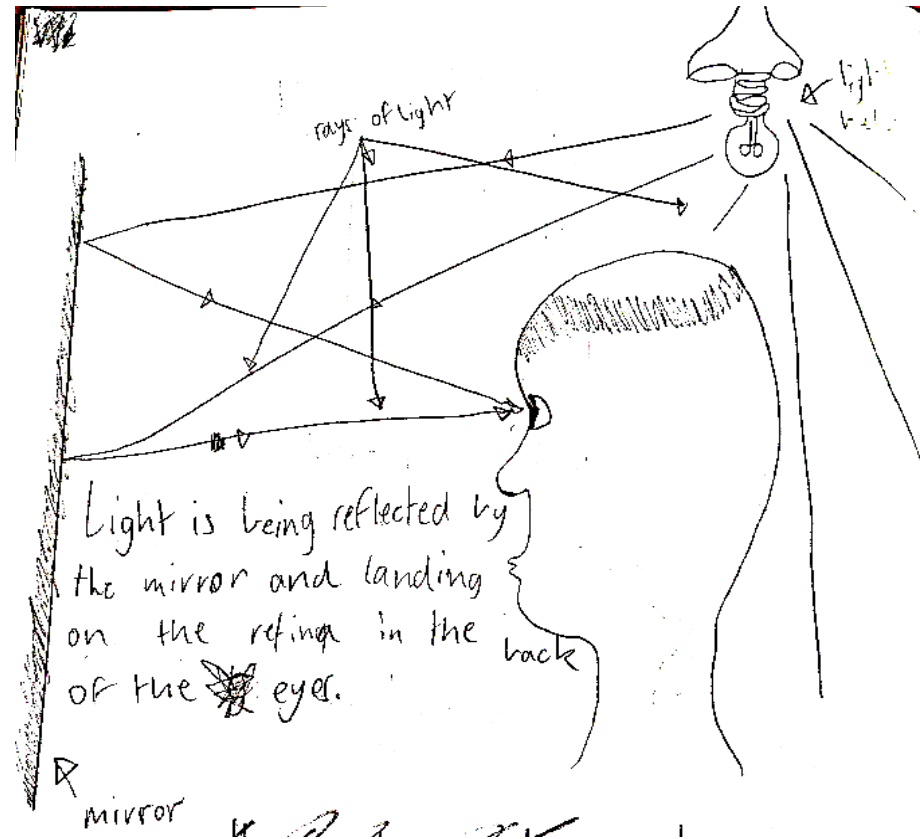 rays of light
light
Light is being reflected by
the mirror and landing
on the retina in the back
of the eyes.
mirror